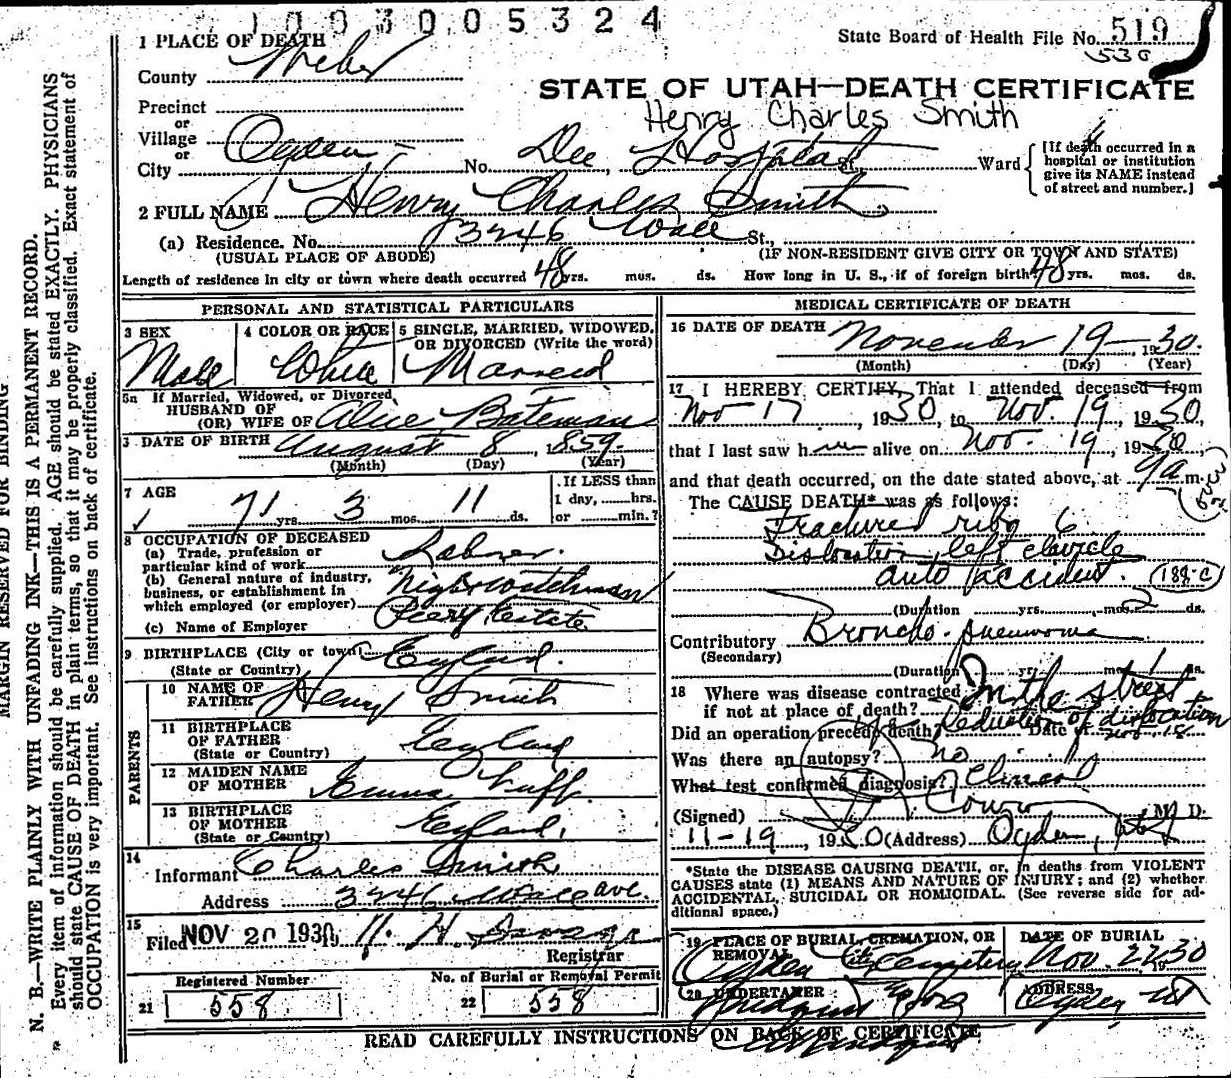 1003005324
State Board of Health File No. 519
530
1 PLACE OF DEATH
County Weber
STATE OF UTAH—DEATH CERTIFICATE
Henry Charles Smith
Precinct
or
Village
or
City Ogden No. Dee Hospital St. Ward
[If death occurred in a
hospital or institution
give its NAME instead
of street and number.]
2 FULL NAME Henry Charles Smith
(a) Residence. No. 3246 Wall St.,
(USUAL PLACE OF ABODE) (IF NON-RESIDENT GIVE CITY OR TOWN AND STATE)
Length of residence in city or town where death occurred 48 yrs. mos. ds. How long in U. S., if of foreign birth 48 yrs. mos. ds.
PERSONAL AND STATISTICAL PARTICULARS
3 SEX 4 COLOR OR RACE 5 SINGLE, MARRIED, WIDOWED,
OR DIVORCED (Write the word)
Male White Married
5a If Married, Widowed, or Divorced
HUSBAND OF
(OR) WIFE OF Alice Bateman
DATE OF BIRTH August 8, 1859.
(Month) (Day) (Year)
7 AGE If LESS than
1 day, hrs.
71 yrs. 3 mos. 11 ds. or min.?
8 OCCUPATION OF DECEASED
(a) Trade, profession or
particular kind of work Laborer.
(b) General nature of industry,
business, or establishment in
which employed (or employer) Nightwatchman
(c) Name of Employer Peery Estate
9 BIRTHPLACE (City or town) England.
(State or Country)
PARENTS
10 NAME OF
FATHER Henry Smith
11 BIRTHPLACE
OF FATHER England
(State or Country)
12 MAIDEN NAME
OF MOTHER Emma
13 BIRTHPLACE
OF MOTHER England.
(State or Country)
14
Informant Charles Smith
Address 3246 Wall ave.
15
Filed NOV 20 1930, H.
Registrar
Registered Number No. of Burial or Removal Permit
21 558 22 558
MEDICAL CERTIFICATE OF DEATH
16 DATE OF DEATH November 19— 1930.
(Month) (Day) (Year)
17 I HEREBY CERTIFY, That I attended deceased from
Nov 17, 1930, to Nov. 19, 1930,
that I last saw h im alive on Nov. 19, 1930
and that death occurred, on the date stated above, at 9a m.
The CAUSE DEATH* was as follows:
Fractured ribs 6
Dislocation, left clavicle
auto accident. (188-C)
(Duration yrs. mos. 2 ds.
Contributory Broncho-pneumonia
(Secondary)
(Duration yrs. mos. 1 ds.
18 Where was disease contracted
if not at place of death? In the street
Did an operation precede death? yes Reduction of dislocation Date of Nov. 18
Was there an autopsy? no
What test confirmed diagnosis? Clinical
(Signed) M. D.
11-19, 1930 (Address) Ogden, Utah
*State the DISEASE CAUSING DEATH, or, in deaths from VIOLENT
CAUSES state (1) MEANS AND NATURE OF INJURY; and (2) whether
ACCIDENTAL, SUICIDAL OR HOMICIDAL. (See reverse side for ad-
ditional space.)
19 PLACE OF BURIAL, CREMATION, OR
REMOVAL
DATE OF BURIAL
Ogden City Cemetery Nov. 22 1930
20 UNDERTAKER ADDRESS
Ogden Ut
READ CAREFULLY INSTRUCTIONS ON BACK OF CERTIFICATE
MARGIN RESERVED FOR BINDING
N. B.—WRITE PLAINLY WITH UNFADING INK—THIS IS A PERMANENT RECORD.
Every item of information should be carefully supplied. AGE should be stated EXACTLY. PHYSICIANS
should state CAUSE OF DEATH in plain terms, so that it may be properly classified. Exact statement of
OCCUPATION is very important. See instructions on back of certificate.